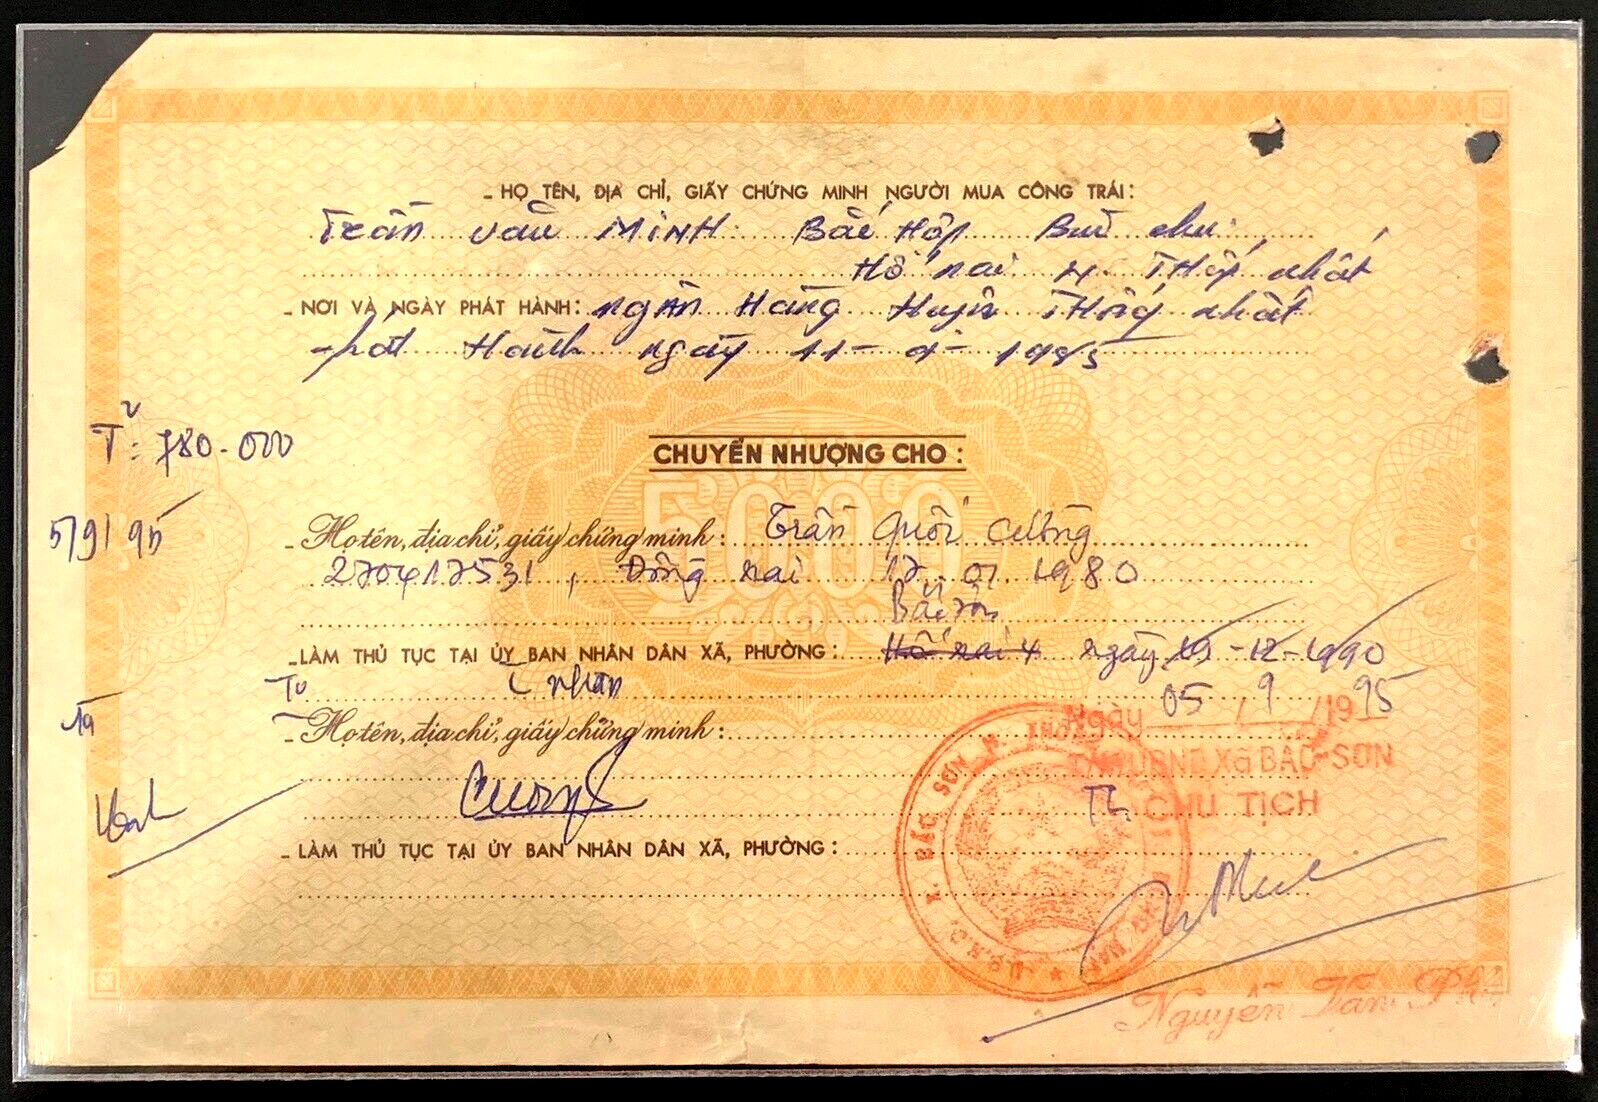 - HỌ TÊN, ĐỊA CHỈ, GIẤY CHỨNG MINH NGƯỜI MUA CÔNG TRÁI:
Trần văn MINH Bắc Hợp Bùi chu
Hố nai 4 THống nhất
- NƠI VÀ NGÀY PHÁT HÀNH: ngân Hàng Huyện THống nhất
phát Hành ngày 11-9-1985
T: 780.000
CHUYỂN NHƯỢNG CHO:
5000
5/9/95
- Họ tên, địa chỉ, giấy chứng minh: Trần Quốc Cường
270417531, Đồng nai 17 01 1980
Bắc Sơn
- LÀM THỦ TỤC TẠI ỦY BAN NHÂN DÂN XÃ, PHƯỜNG: Hố nai 4 ngày 19-12-1990
nhận
- Họ tên, địa chỉ, giấy chứng minh:
Ngày 05/9/1995
TM/UBND Xã BẮC-SƠN
TL CHỦ TỊCH
Cương
- LÀM THỦ TỤC TẠI ỦY BAN NHÂN DÂN XÃ, PHƯỜNG:
U.B.N.D. X. BẮC SƠN
Nguyễn Văn